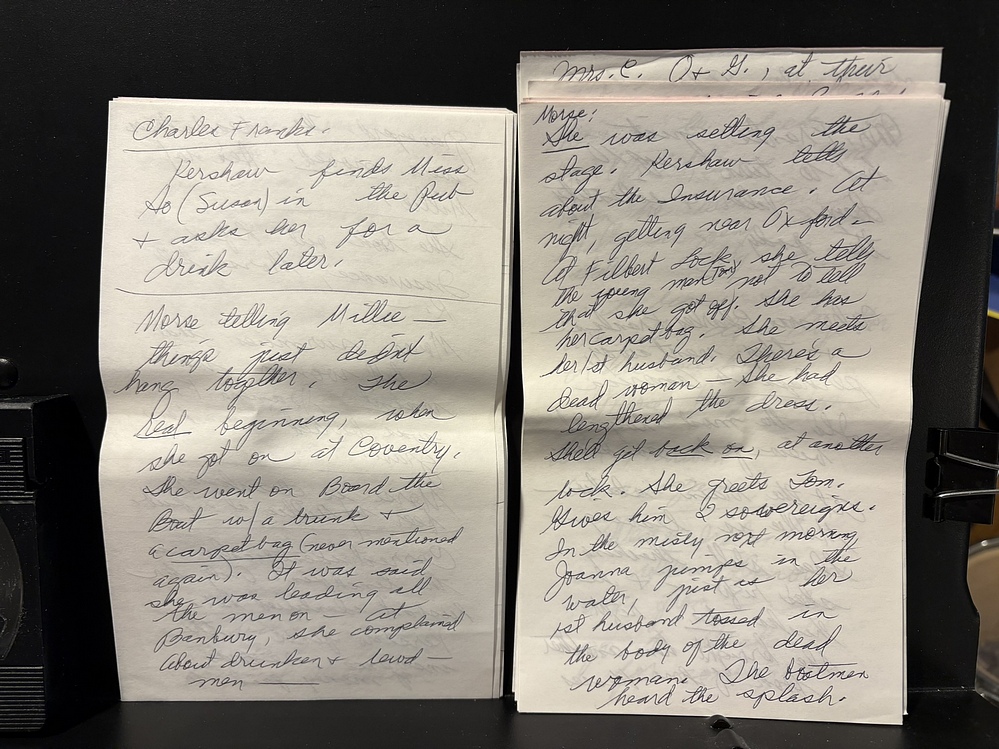 Charles Franks.
Kershaw finds Miss
Ho (Susan) in the Pub
+ asks her for a
drink later.
Morse telling Millie —
things just didn't
hang together. The
Real beginning, when
she got on at Coventry.
She went on Board the
Boat w/a trunk +
a carpetbag (never mentioned
again). It was said
she was leading all
the men on — at
Banbury, she complained
about drunken + lewd —
men —
Mrs. C. O+ G., at their
Morse:
She was setting the
stage. Kershaw tells
about the Insurance. At
night, getting near Oxford —
At Filbert Lock, she tells
the young man (Tom) not to tell
that she got off. She has
her carpetbag. She meets
her 1st husband. There's a
dead woman — She had
lengthened the dress.
She'd get back on, at another
lock. She greets Tom.
Gives him 2 sovereigns.
In the misty next morning
Joanna jumps in the
water, just as her
1st husband tossed in
the body of the dead
woman. The boatmen
heard the splash.